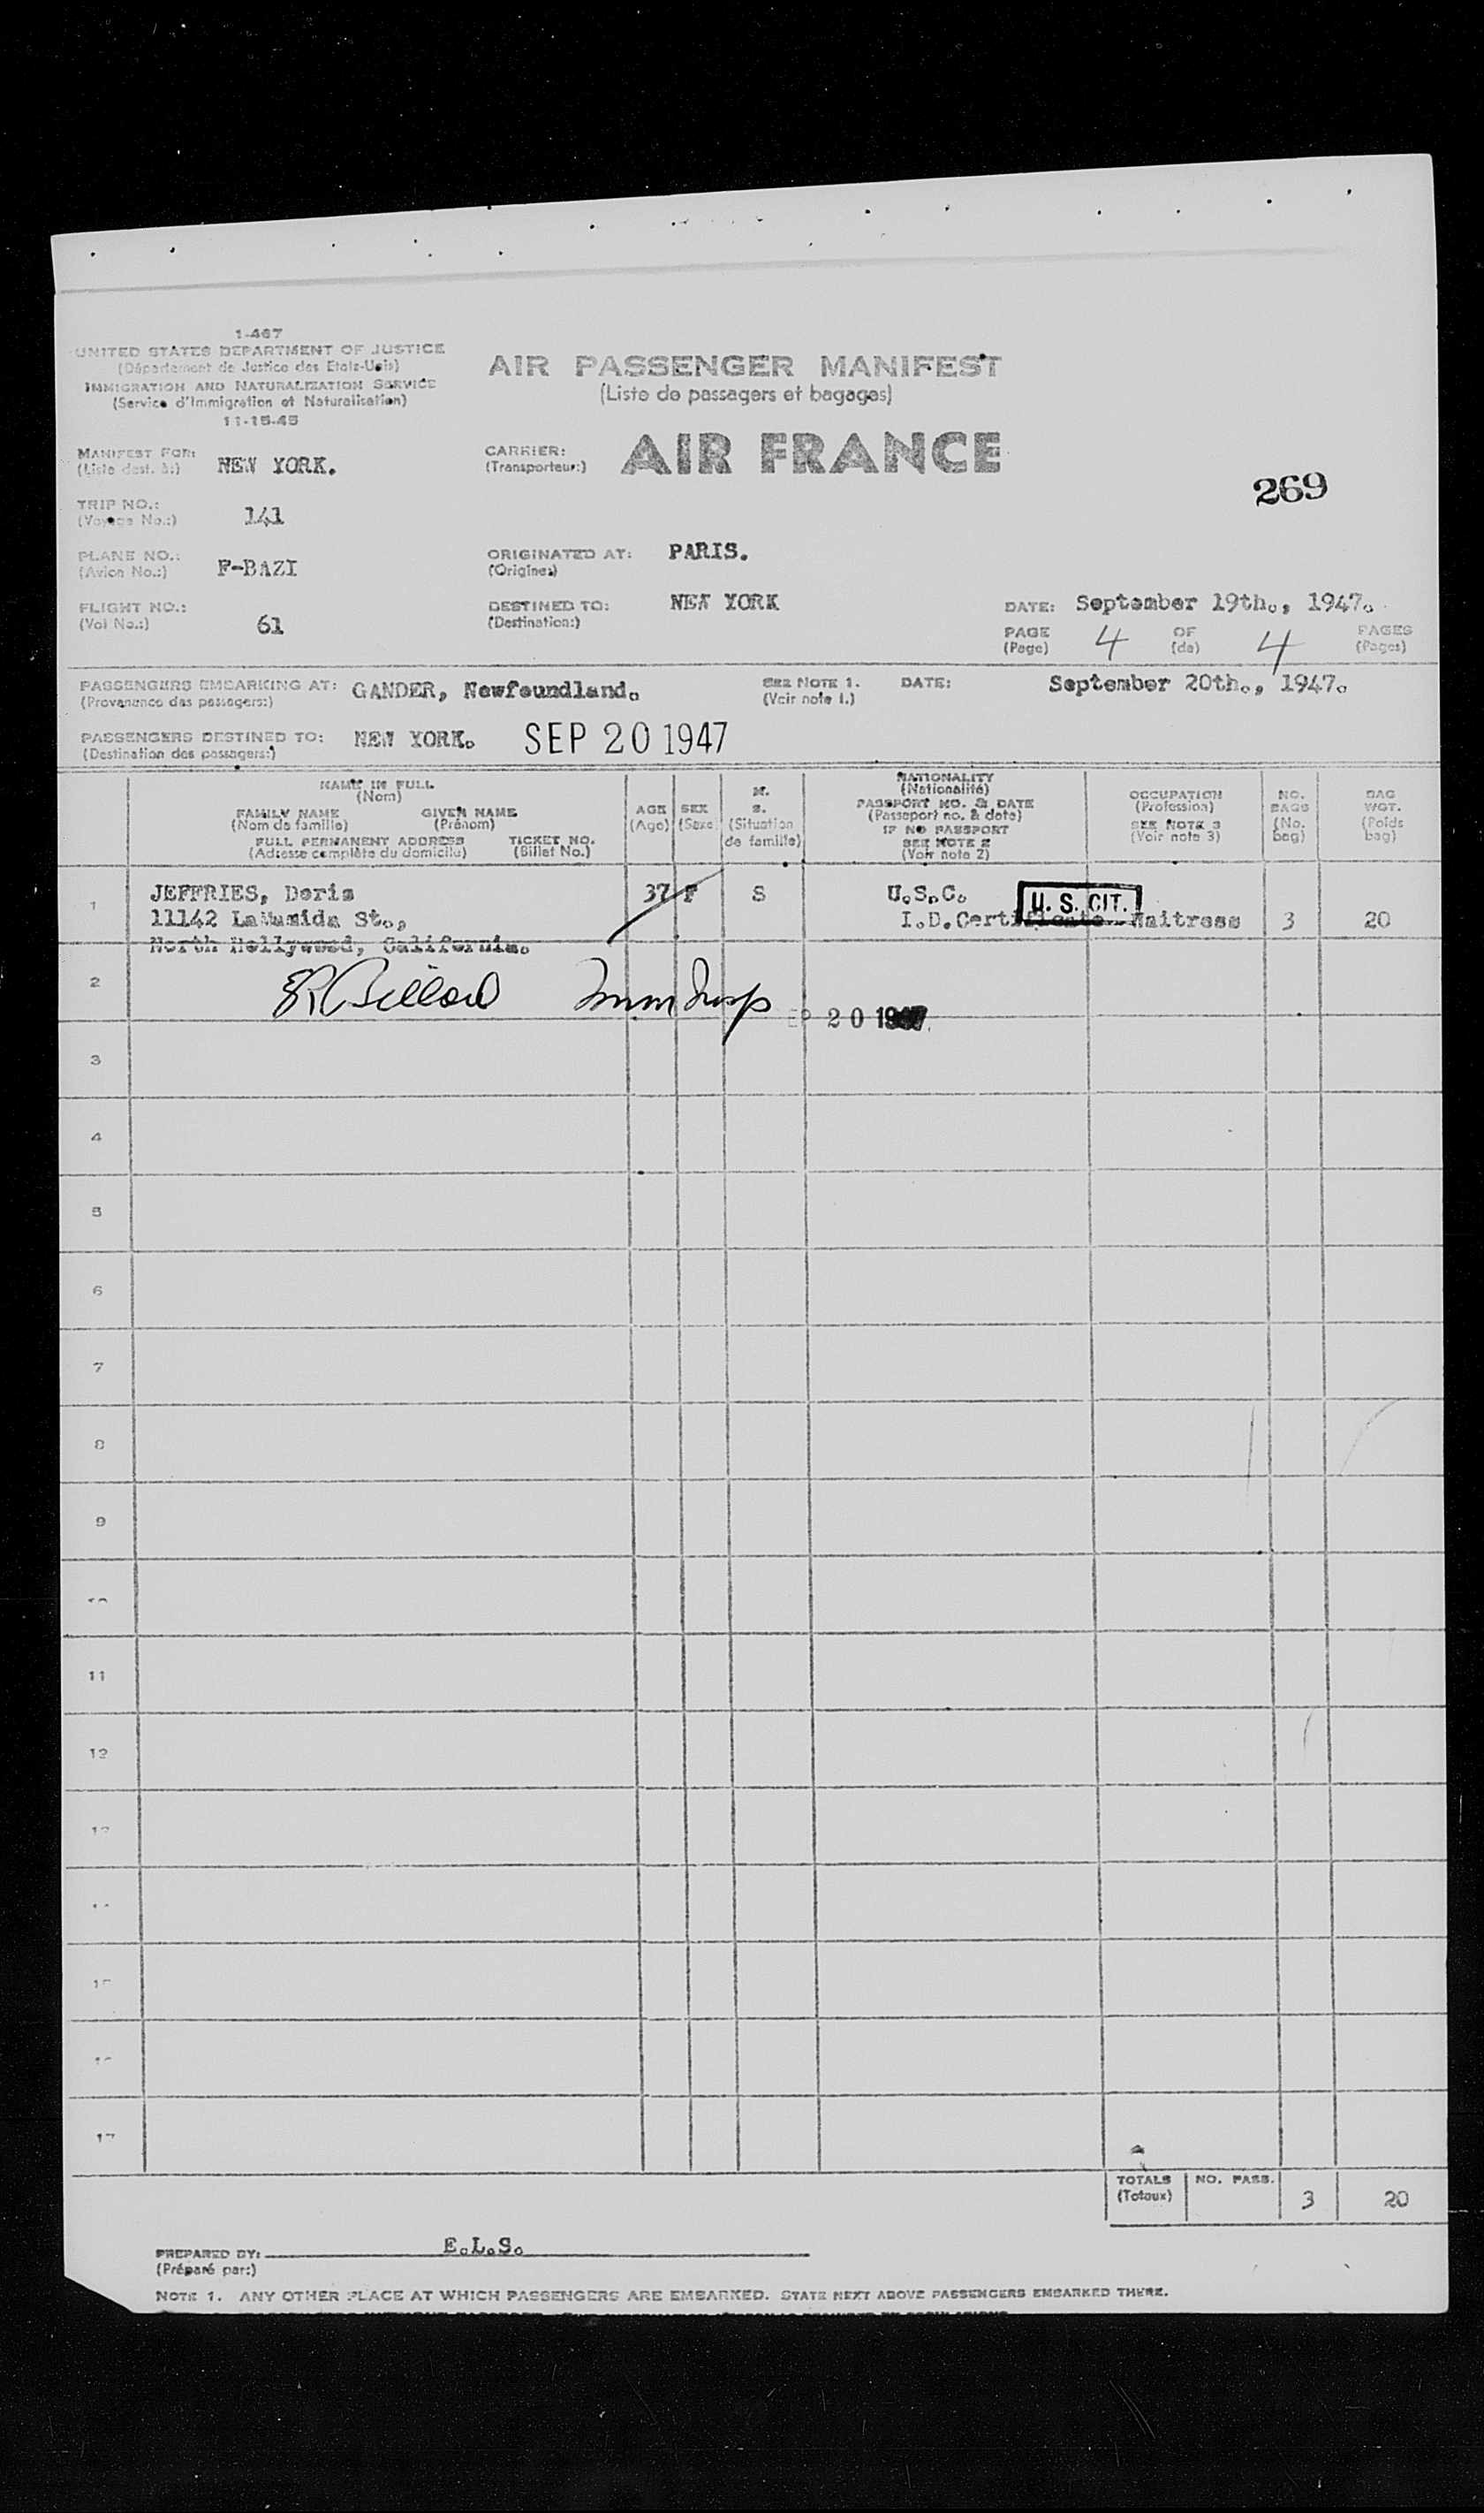 1-467
UNITED STATES DEPARTMENT OF JUSTICE
(Département de Justice des Etats-Unis)
IMMIGRATION AND NATURALIZATION SERVICE
(Service d'Immigration et Naturalisation)
11-15-45
AIR PASSENGER MANIFEST
(Liste de passagers et bagages)
MANIFEST FOR: NEW YORK.
(Liste dest. à:)
CARRIER: AIR FRANCE
(Transporteur:)
269
TRIP NO.: 141
(Voyage No.:)
PLANE NO.: F-BAZI
(Avion No.:)
ORIGINATED AT: PARIS.
(Origine:)
FLIGHT NO.: 61
(Vol No.:)
DESTINED TO: NEW YORK
(Destination:)
DATE: September 19th., 1947.
PAGE 4 OF 4 PAGES
(Page) (de) (Pages)
PASSENGERS EMBARKING AT: GANDER, Newfoundland.
(Provenance des passagers:)
SEE NOTE 1. DATE: September 20th., 1947.
(Voir note 1.)
PASSENGERS DESTINED TO: NEW YORK. SEP 20 1947
(Destination des passagers:)
NAME IN FULL
(Nom)
FAMILY NAME GIVEN NAME
(Nom de famille) (Prénom)
FULL PERMANENT ADDRESS TICKET NO.
(Adresse complète du domicile) (Billet No.)
AGE
(Age)
SEX
(Sexe)
M.
S.
(Situation
de famille)
NATIONALITY
(Nationalité)
PASSPORT NO. & DATE
(Passeport no. & date)
IF NO PASSPORT
SEE NOTE 2
(Voir note 2)
OCCUPATION
(Profession)
SEE NOTE 3
(Voir note 3)
NO.
BAGS
(No.
bag)
BAG
WGT.
(Poids
bag)
1 JEFFRIES, Doris 37 F S U.S.C. U. S. CIT.
11142 St., I.D.Certificate Waitress 3 20
North Hollywood, California.
2
20 1947
3
4
5
6
7
8
9
11
12
TOTALS NO. PASS. 3 20
(Totaux)
PREPARED BY: E.L.S.
(Préparé par:)
NOTE 1. ANY OTHER PLACE AT WHICH PASSENGERS ARE EMBARKED. STATE NEXT ABOVE PASSENGERS EMBARKED THERE.